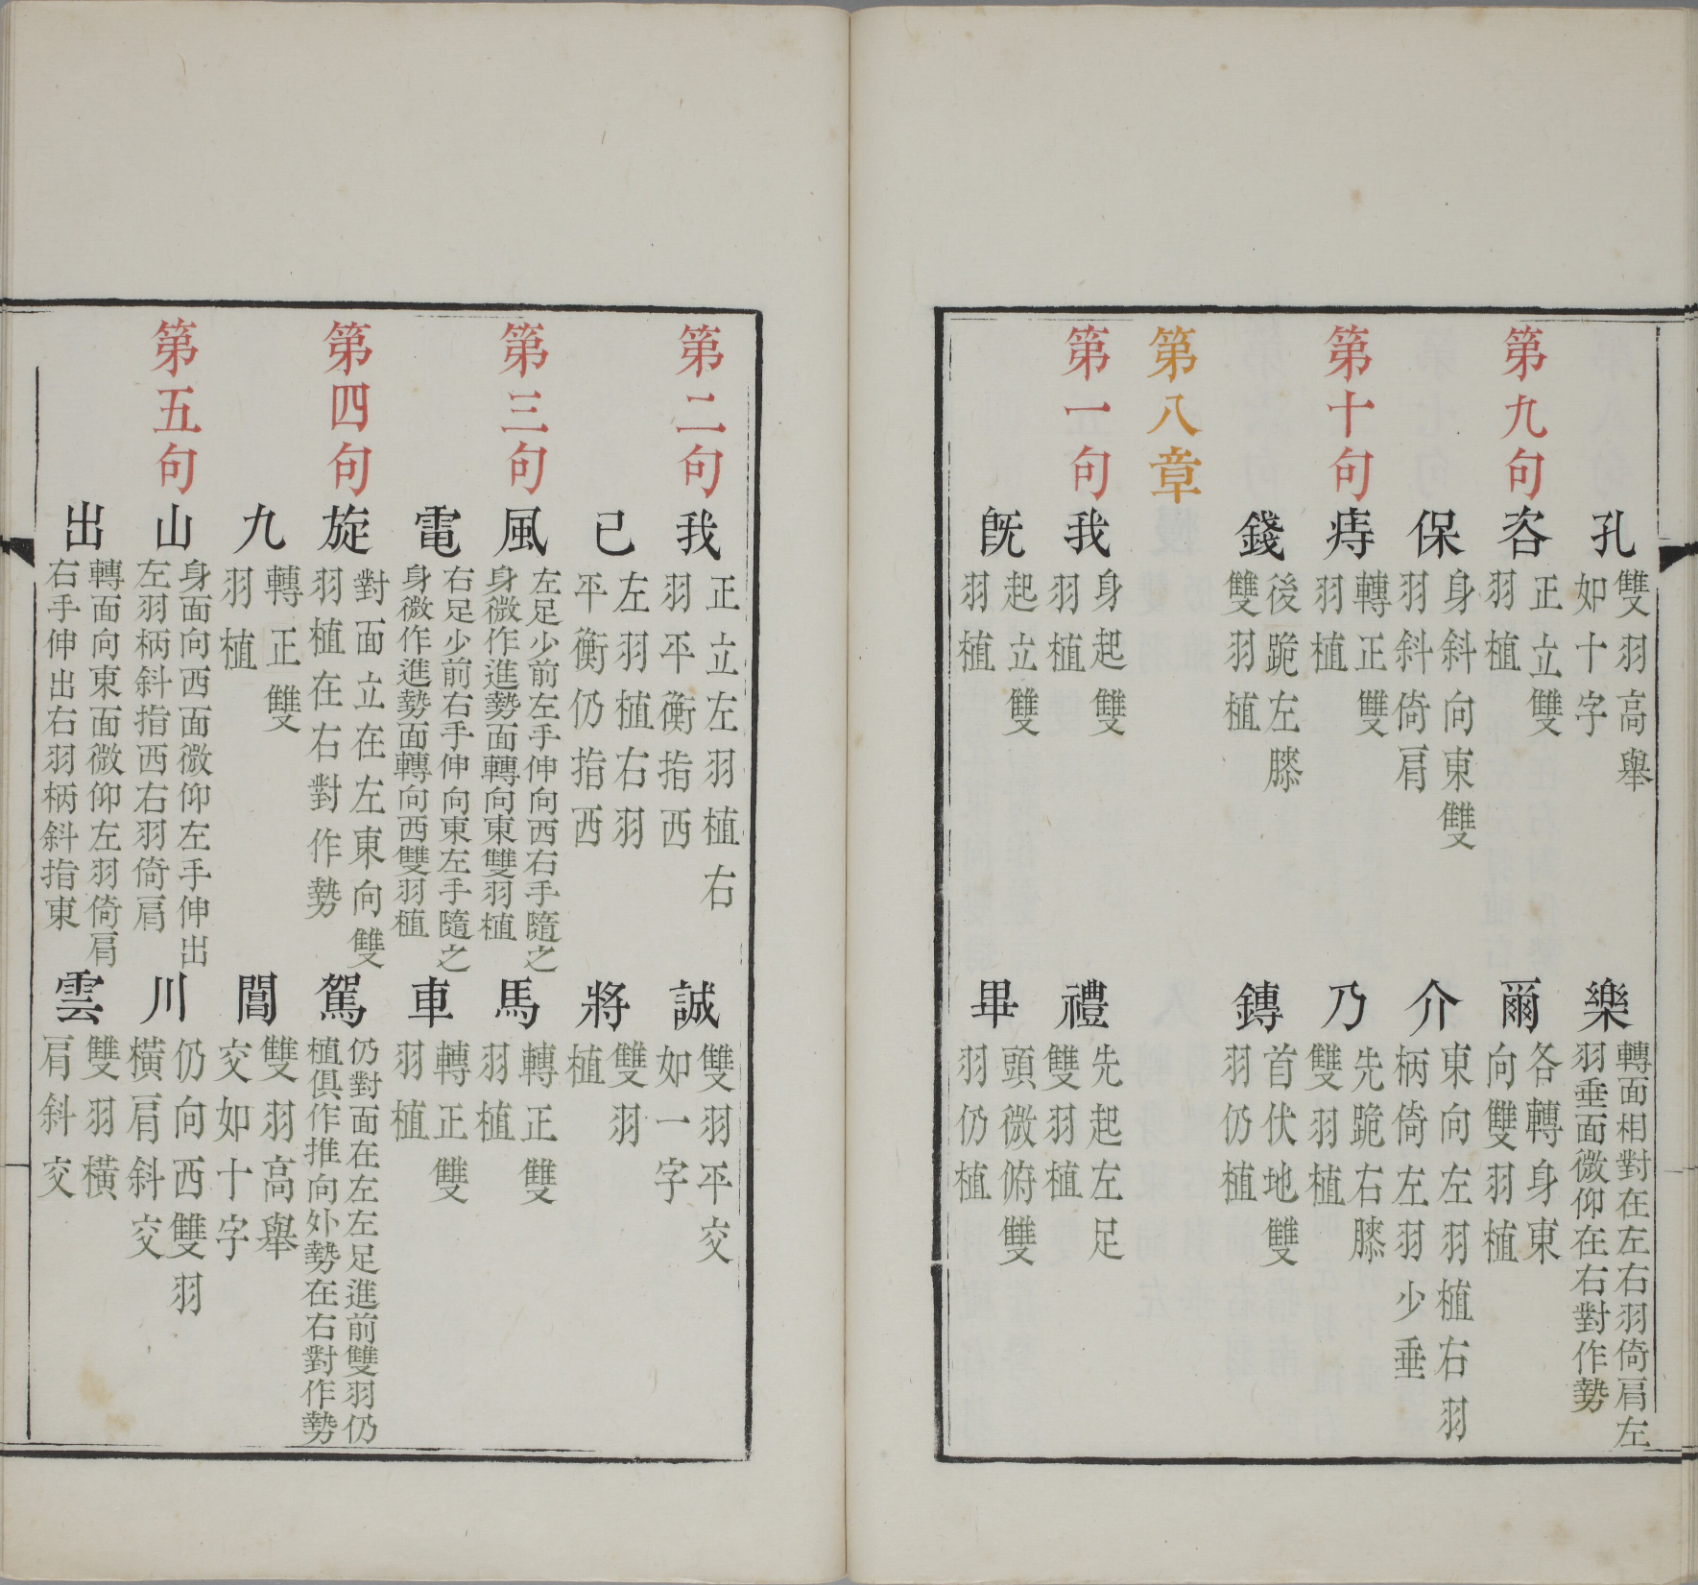 孔雙羽高舉如十字樂轉面相對在左右羽倚肩左羽垂面微仰在右對作勢
第九句咨正立雙羽植爾各轉身東向雙羽植
保身斜向東雙羽斜倚肩介東向左羽植右羽柄倚左羽少垂
第十句痔轉正雙羽植乃先跪右膝雙羽植
錢後跪左膝雙羽植鎛首伏地雙羽仍植
第八章
第一句我身起雙羽植禮先起左足雙羽植
旣起立雙羽植畢頭微俯雙羽仍植
第二句我正立左羽植右羽平衡指西誠雙羽平交如一字
已左羽植右羽平衡仍指西將雙羽植
第三句風左足少前左手伸向西右手隨之身微作進勢面轉向東雙羽植馬轉正雙羽植
電右足少前右手伸向東左手隨之身微作進勢面轉向西雙羽植車轉正雙羽植
第四句旋對面立在左東向雙羽植在右對作勢駕仍對面在左左足進前雙羽仍植俱作推向外勢在右對作勢
九轉正雙羽植閶雙羽高舉交如十字
第五句山身面向西面微仰左手伸出左羽柄斜指西右羽倚肩川仍向西雙羽橫肩斜交
出轉面向東面微仰左羽倚肩右手伸出右羽柄斜指東雲雙羽橫肩斜交